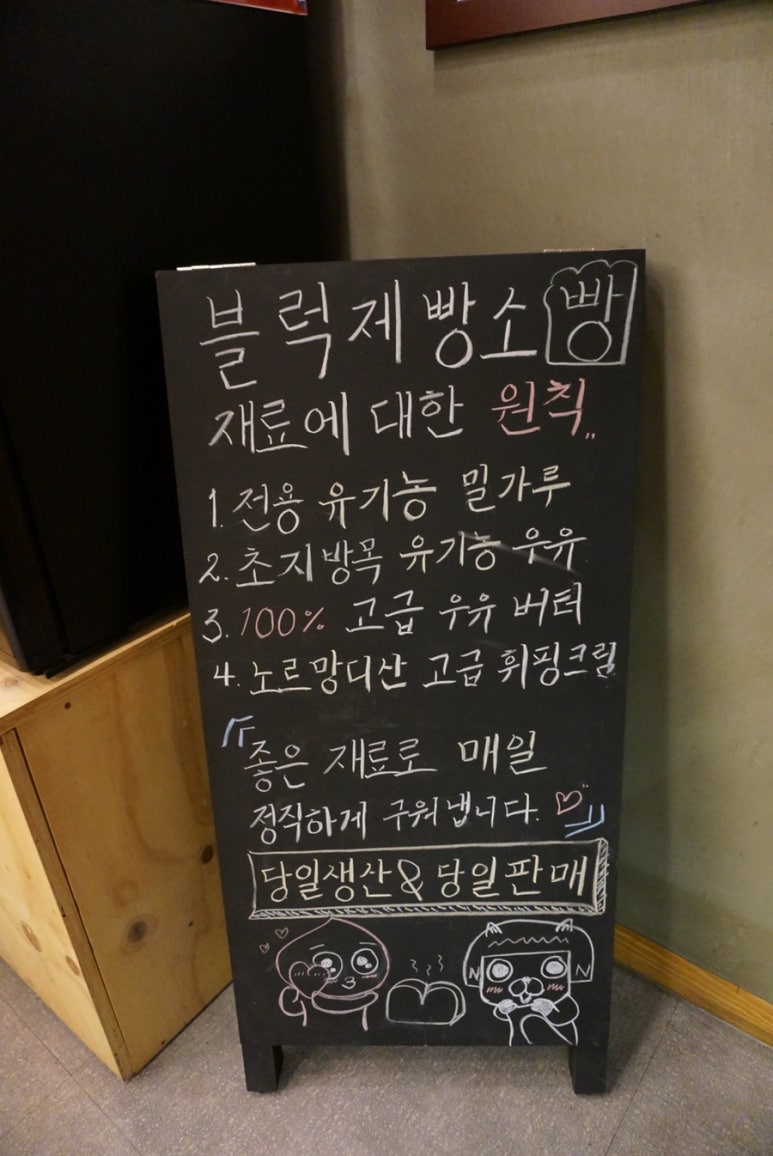 블럭제빵소 빵
재료에 대한 원칙„
1. 전용 유기농 밀가루
2. 초지방목 유기농 우유
3. 100% 고급 우유 버터
4. 노르망디산 고급 휘핑크림
『좋은 재료로 매일
정직하게 구워냅니다.♡』
당일생산 & 당일판매
N N